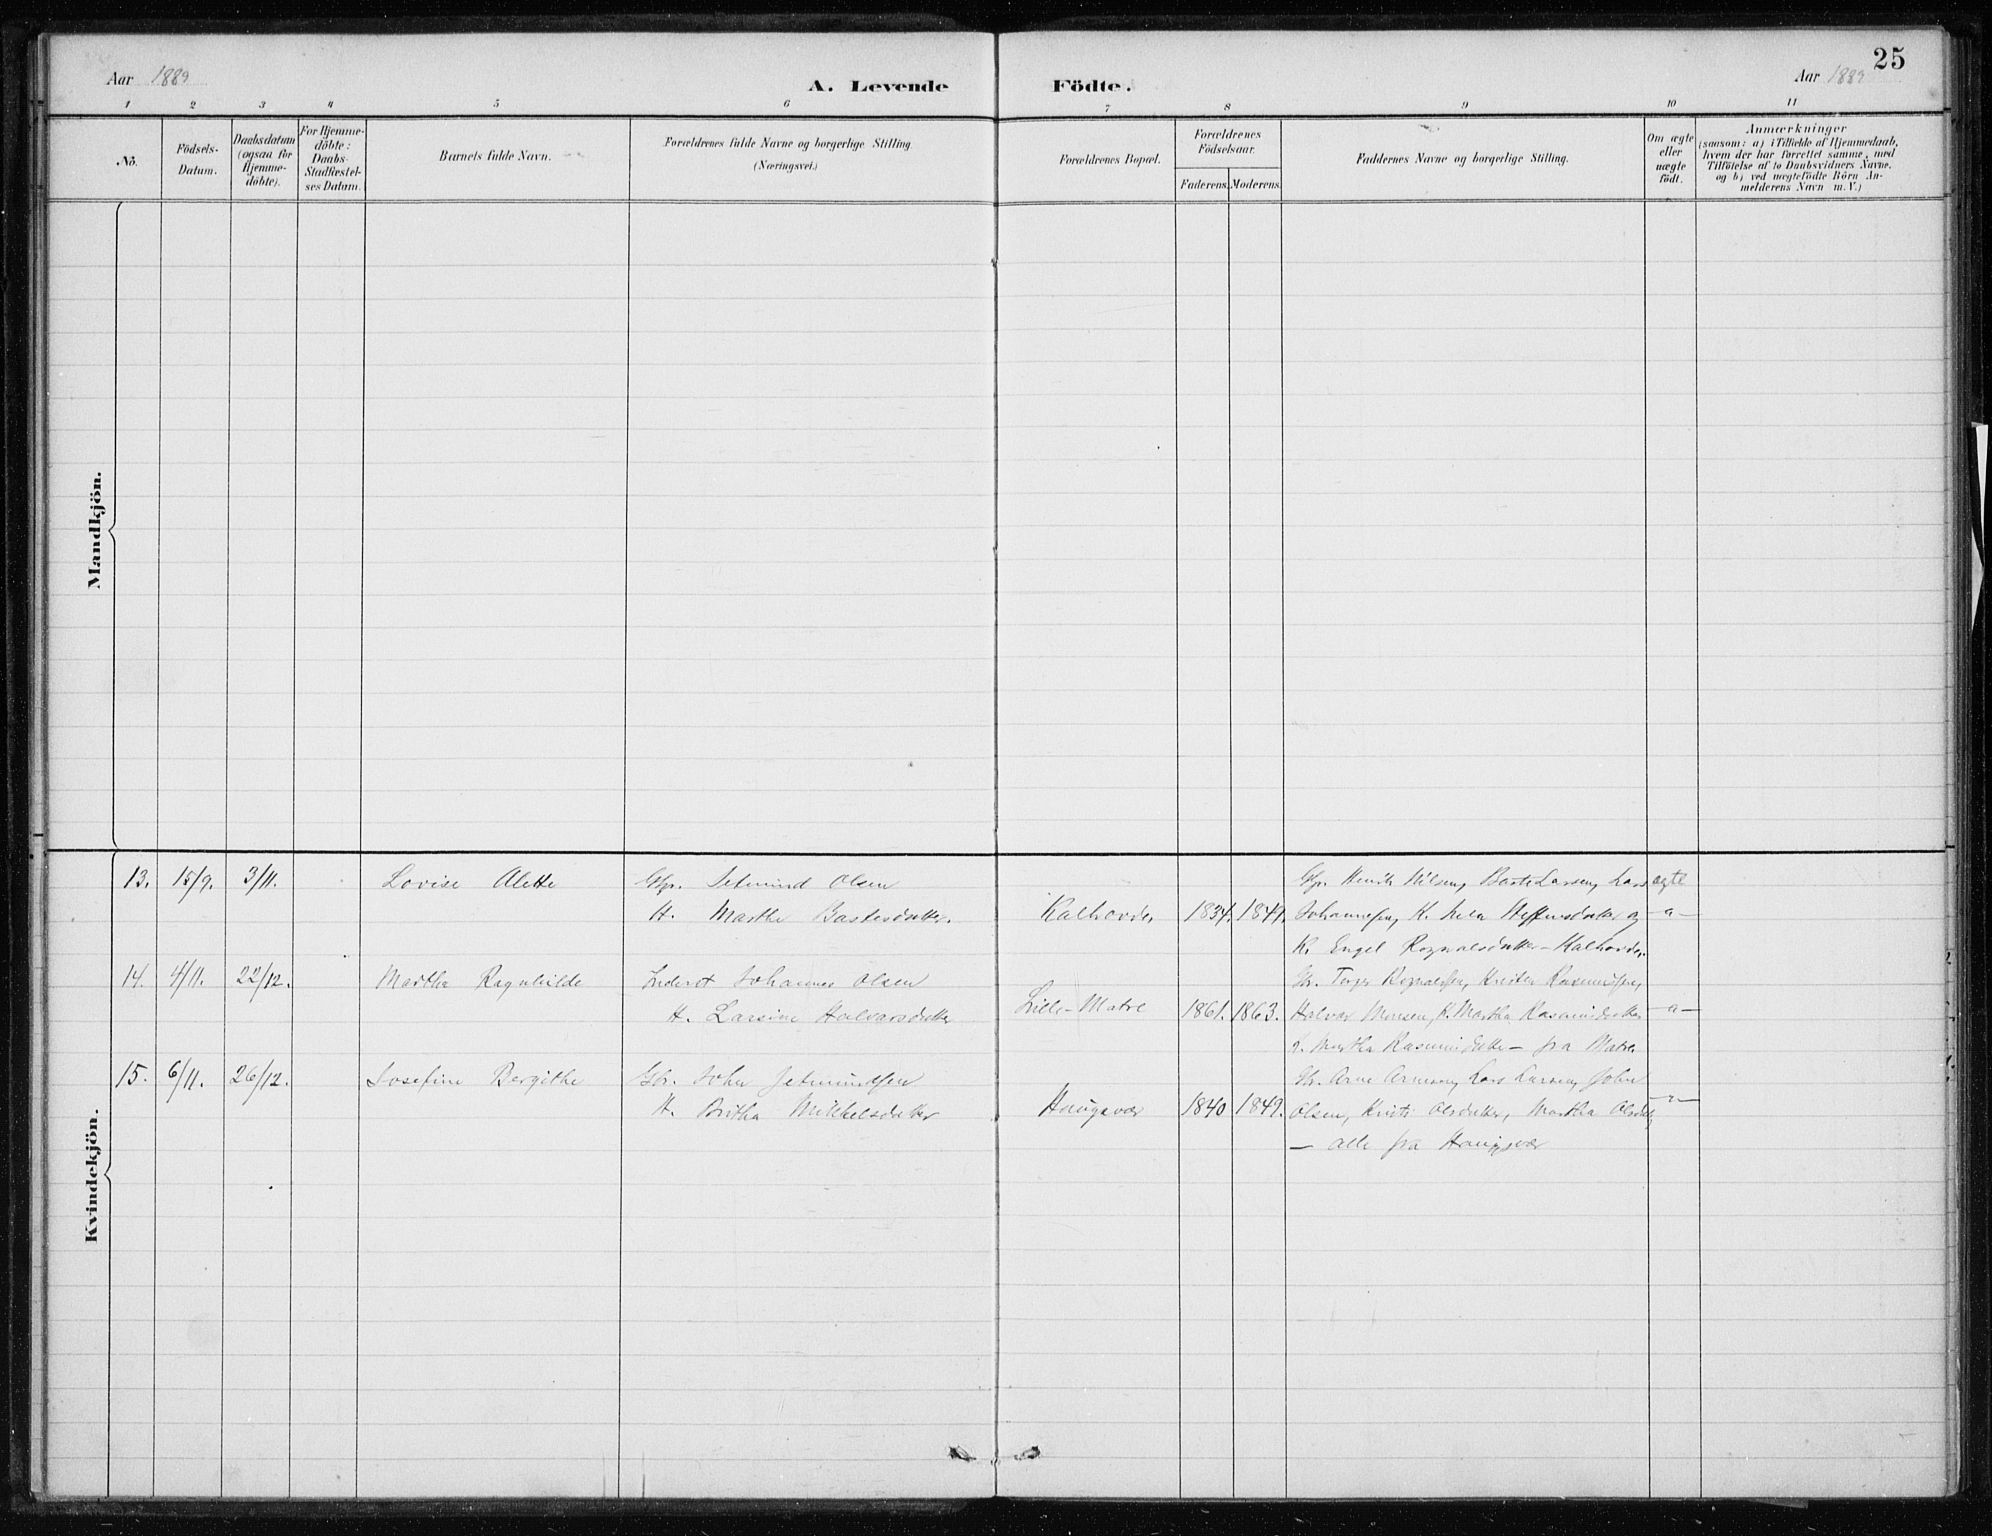 25
Aar 1889 A. Levende Födte. Aar 1889
1 2 3 4 5 6 7 8 9 10 11
No.
Födsels-
Datum.
Daabsdatum
(ogsaa for
Hjemme-
döbte).
For Hjemme-
döbte:
Daabs-
Stadfæstel-
ses Datum.
Barnets fulde Navn.
Forældrenes fulde Navne og borgerlige Stilling.
(Næringsvei.)
Forældrenes Bopæl.
Forældrenes
Födselsaar.
Faderens. Moderens.
Faddernes Navne og borgerlige Stilling.
Om ægte
eller
uægte
födt.
Anmærkninger
(saasom: a) i Tilfælde af Hjemmedaab,
hvem der har forrettet samme, med
Tilföielse af to Daabsvidners Navne,
og b) ved uægtefödte Börn An-
melderens Navn m. V.)
Mandkjön.
Kvindekjön.
13. 15/9. 3/11. Lovise Alette Gbr. Setmind Olsen Gbr. Henrik Nilsen, Baste Larsen, Lars ægte
H. Marthe Bastesdatter. Kalhovde, 1834. 1849. Johannessen, K. Steffensdatter og -"-
K. Engel Rognaldsdatter - Kalhovde.
14. 4/11. 22/12. Martha Ragnhilde Inderst Johannes Olsen Gbr. Rognaldsen, Rasmussen,
H. Larsine Halvarsdatter Lille-Matre 1861. 1863. Halvar Monsen, K. Martha Rasmusdatter -"-
Martha Rasmusdatter - fra Matre
15. 6/11. 26/12. Josefine Bergithe Gbr. John Setmindsen Gbr. Arne Arnesen, Lars Larsen, John
H. Britha Mikkelsdatter Haugsvær 1840 1849. Olsen, Kristi Olsdatter, Martha Olsdtr, -"-
- alle fra Haugsvær